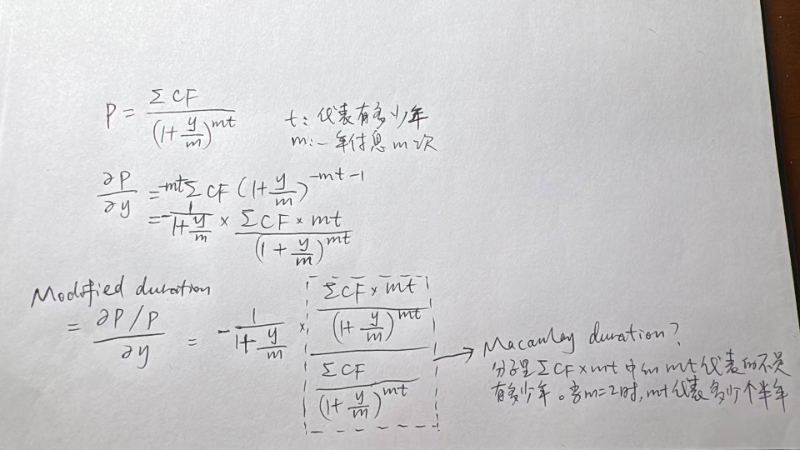 P = ΣCF / (1+y/m)^mt
t：代表有多少年
m：一年付息m次
∂P/∂y = -mt ΣCF (1+y/m)^-mt-1
= -1/(1+y/m) × ΣCF×mt / (1+y/m)^mt
Modified duration
= ∂P/P / ∂y = -1/(1+y/m) × [ΣCF×mt / (1+y/m)^mt] / [ΣCF / (1+y/m)^mt]
→ Macaulay duration?
分子里ΣCF×mt中的mt代表的不是
有多少年。当m=2时,mt代表多少个半年